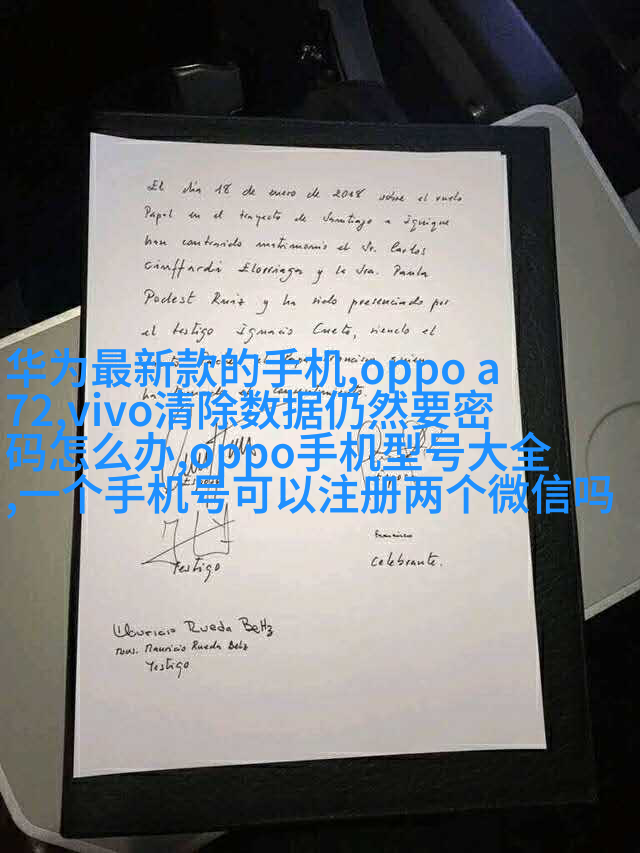 El día 18 de enero de 2018 sobre el vuelo
Papal en el trayecto de Santiago a Iquique
han contraido matrimonio el Sr. Carlos
Ciuffardi Elorriaga y la Sra. Paula
Podest Ruiz y ha sido presenciado por
el testigo Ignacio Cueto, siendo el
华为最新款的手机,oppo a
72,vivo清除数据仍然要密
码怎么办,oppo手机型号大全
,一个手机号可以注册两个微信吗
Testigo
Franciscus
Celebrante.
Mauricio Rueda Beltz
Mons. Mauricio Rueda Beltz
Testigo